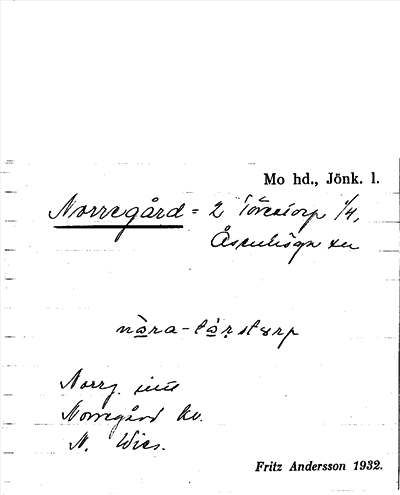 Mo hd., Jönk. l.
Norregård = 2 Torestorp 1/4,
Åsenhöga sn
nàra-tá̀rstorp
Norrg.
Norregård
N.
Fritz Andersson 1932.